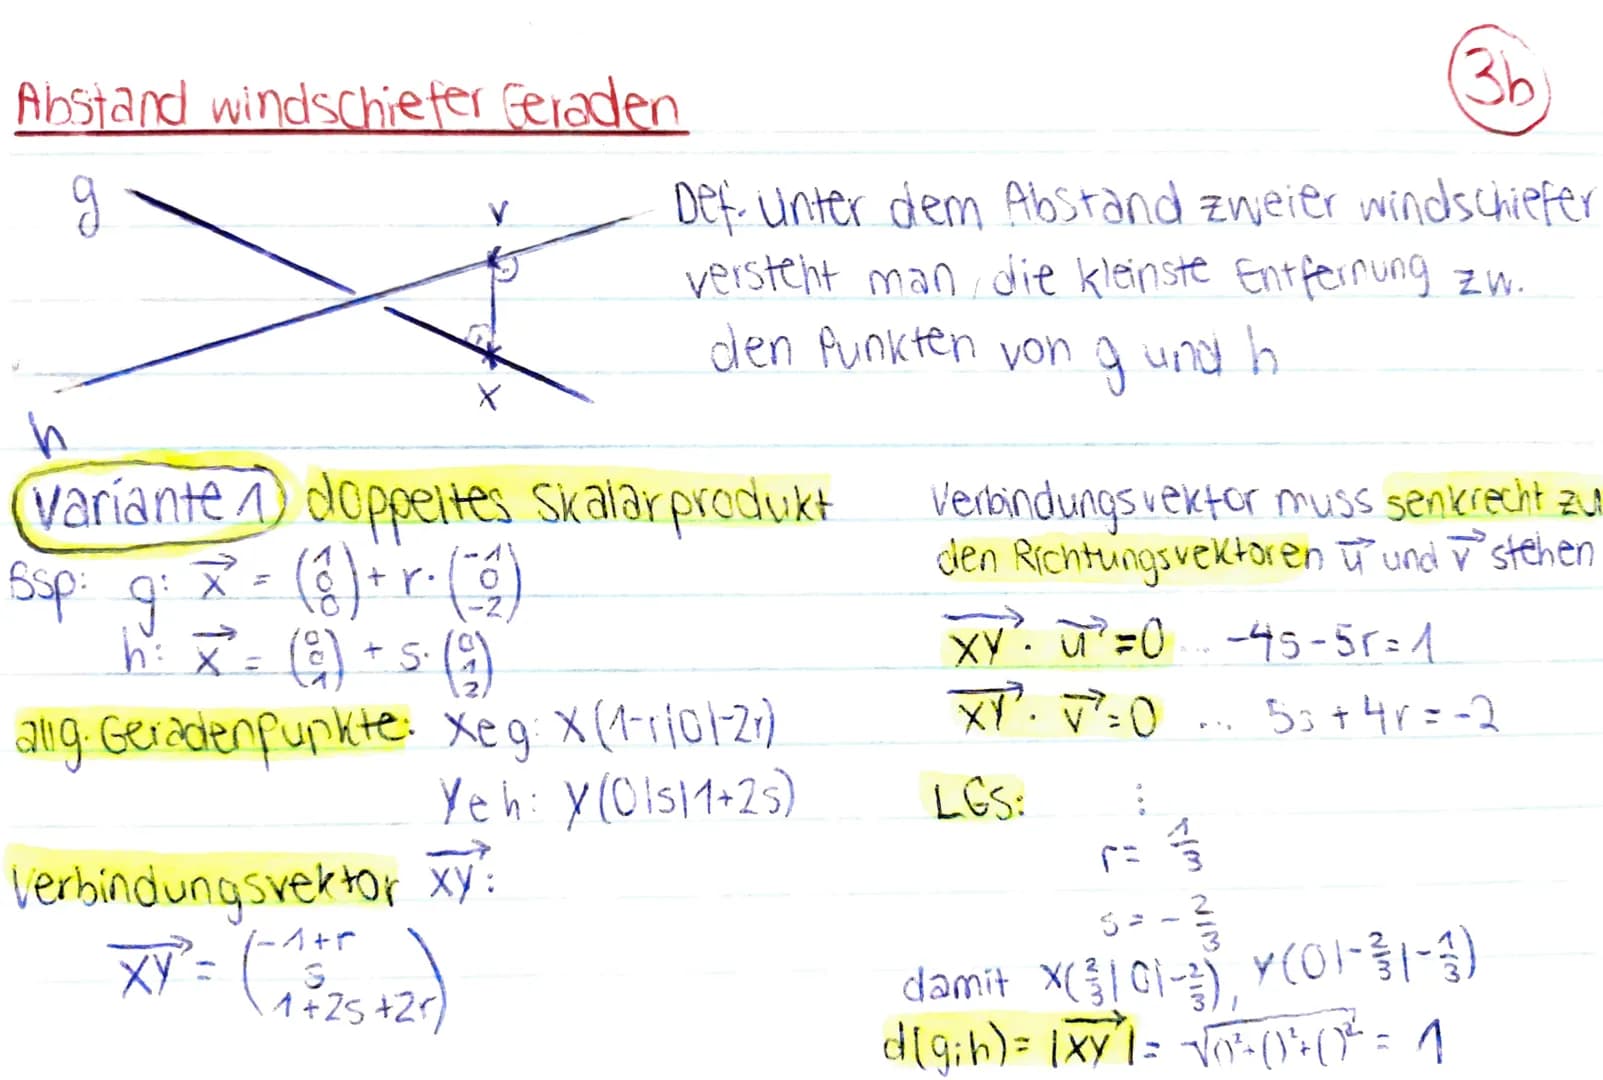 3b
Abstand windschiefer Geraden
g
Y
X
h
Def. Unter dem Abstand zweier windschiefer
versteht man, die kleinste Entfernung zw.
den Punkten von g und h
Variante 1 doppeltes Skalarprodukt
Bsp: g: x⃗ = (1 0 0) + r · (-1 0 -2)
h: x⃗ = (0 0 1) + s · (0 1 2)
allg. Geradenpunkte: X∈g: X(1-r|0|-2r)
Y∈h: Y(0|s|1+2s)
Verbindungsvektor XY⃗:
XY⃗ = (-1+r
s
1+2s+2r)
Verbindungsvektor muss senkrecht zu
den Richtungsvektoren u⃗ und v⃗ stehen
XY⃗ · u⃗ = 0 ... -4s-5r=1
XY⃗ · v⃗ = 0 ... 5s+4r=-2
LGS: ⋮
r = 1/3
s = -2/3
damit X(2/3|0|-2/3), Y(0|-2/3|-1/3)
d(g;h) = |XY⃗| = √()²+()²+()² = 1